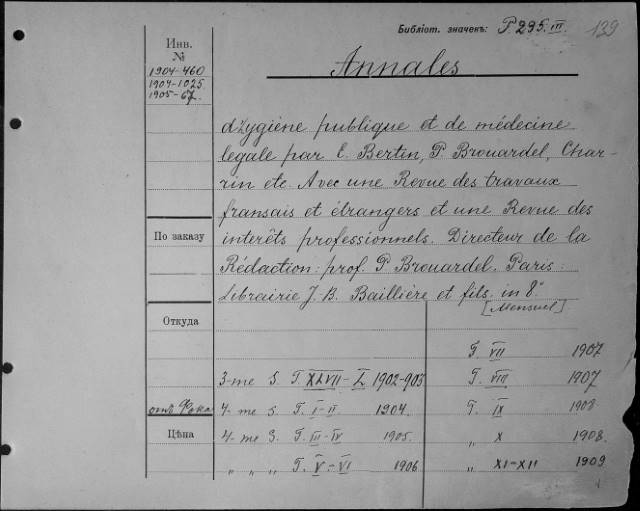 Библіот. значекъ: P. 295. III. 139
Инв.
№
1904-460
1904-1025
1905-67.
Annales
d'hygiène publique et de médecine
legale par E. Bertin, P. Brouardel, Char-
rin etc. Avec une Revue des travaux
fransais et étrangers et une Revue des
interêts professionnels. Directeur de la
Rédaction: prof. P. Brouardel. Paris:
Librairie J. B. Baillière et fils. in 8°
[Mensuel]
По заказу
Откуда
отъ Рока
Цѣна
3-me S. T. XLVII-L 1902-903
4-me S. T. I-II 1904.
4-me S. T. III-IV 1905.
„ „ „ T. V-VI 1906
T. VII 1907
T. VIII 1907
T. IX 1908
„ X 1908.
„ XI-XII 1909